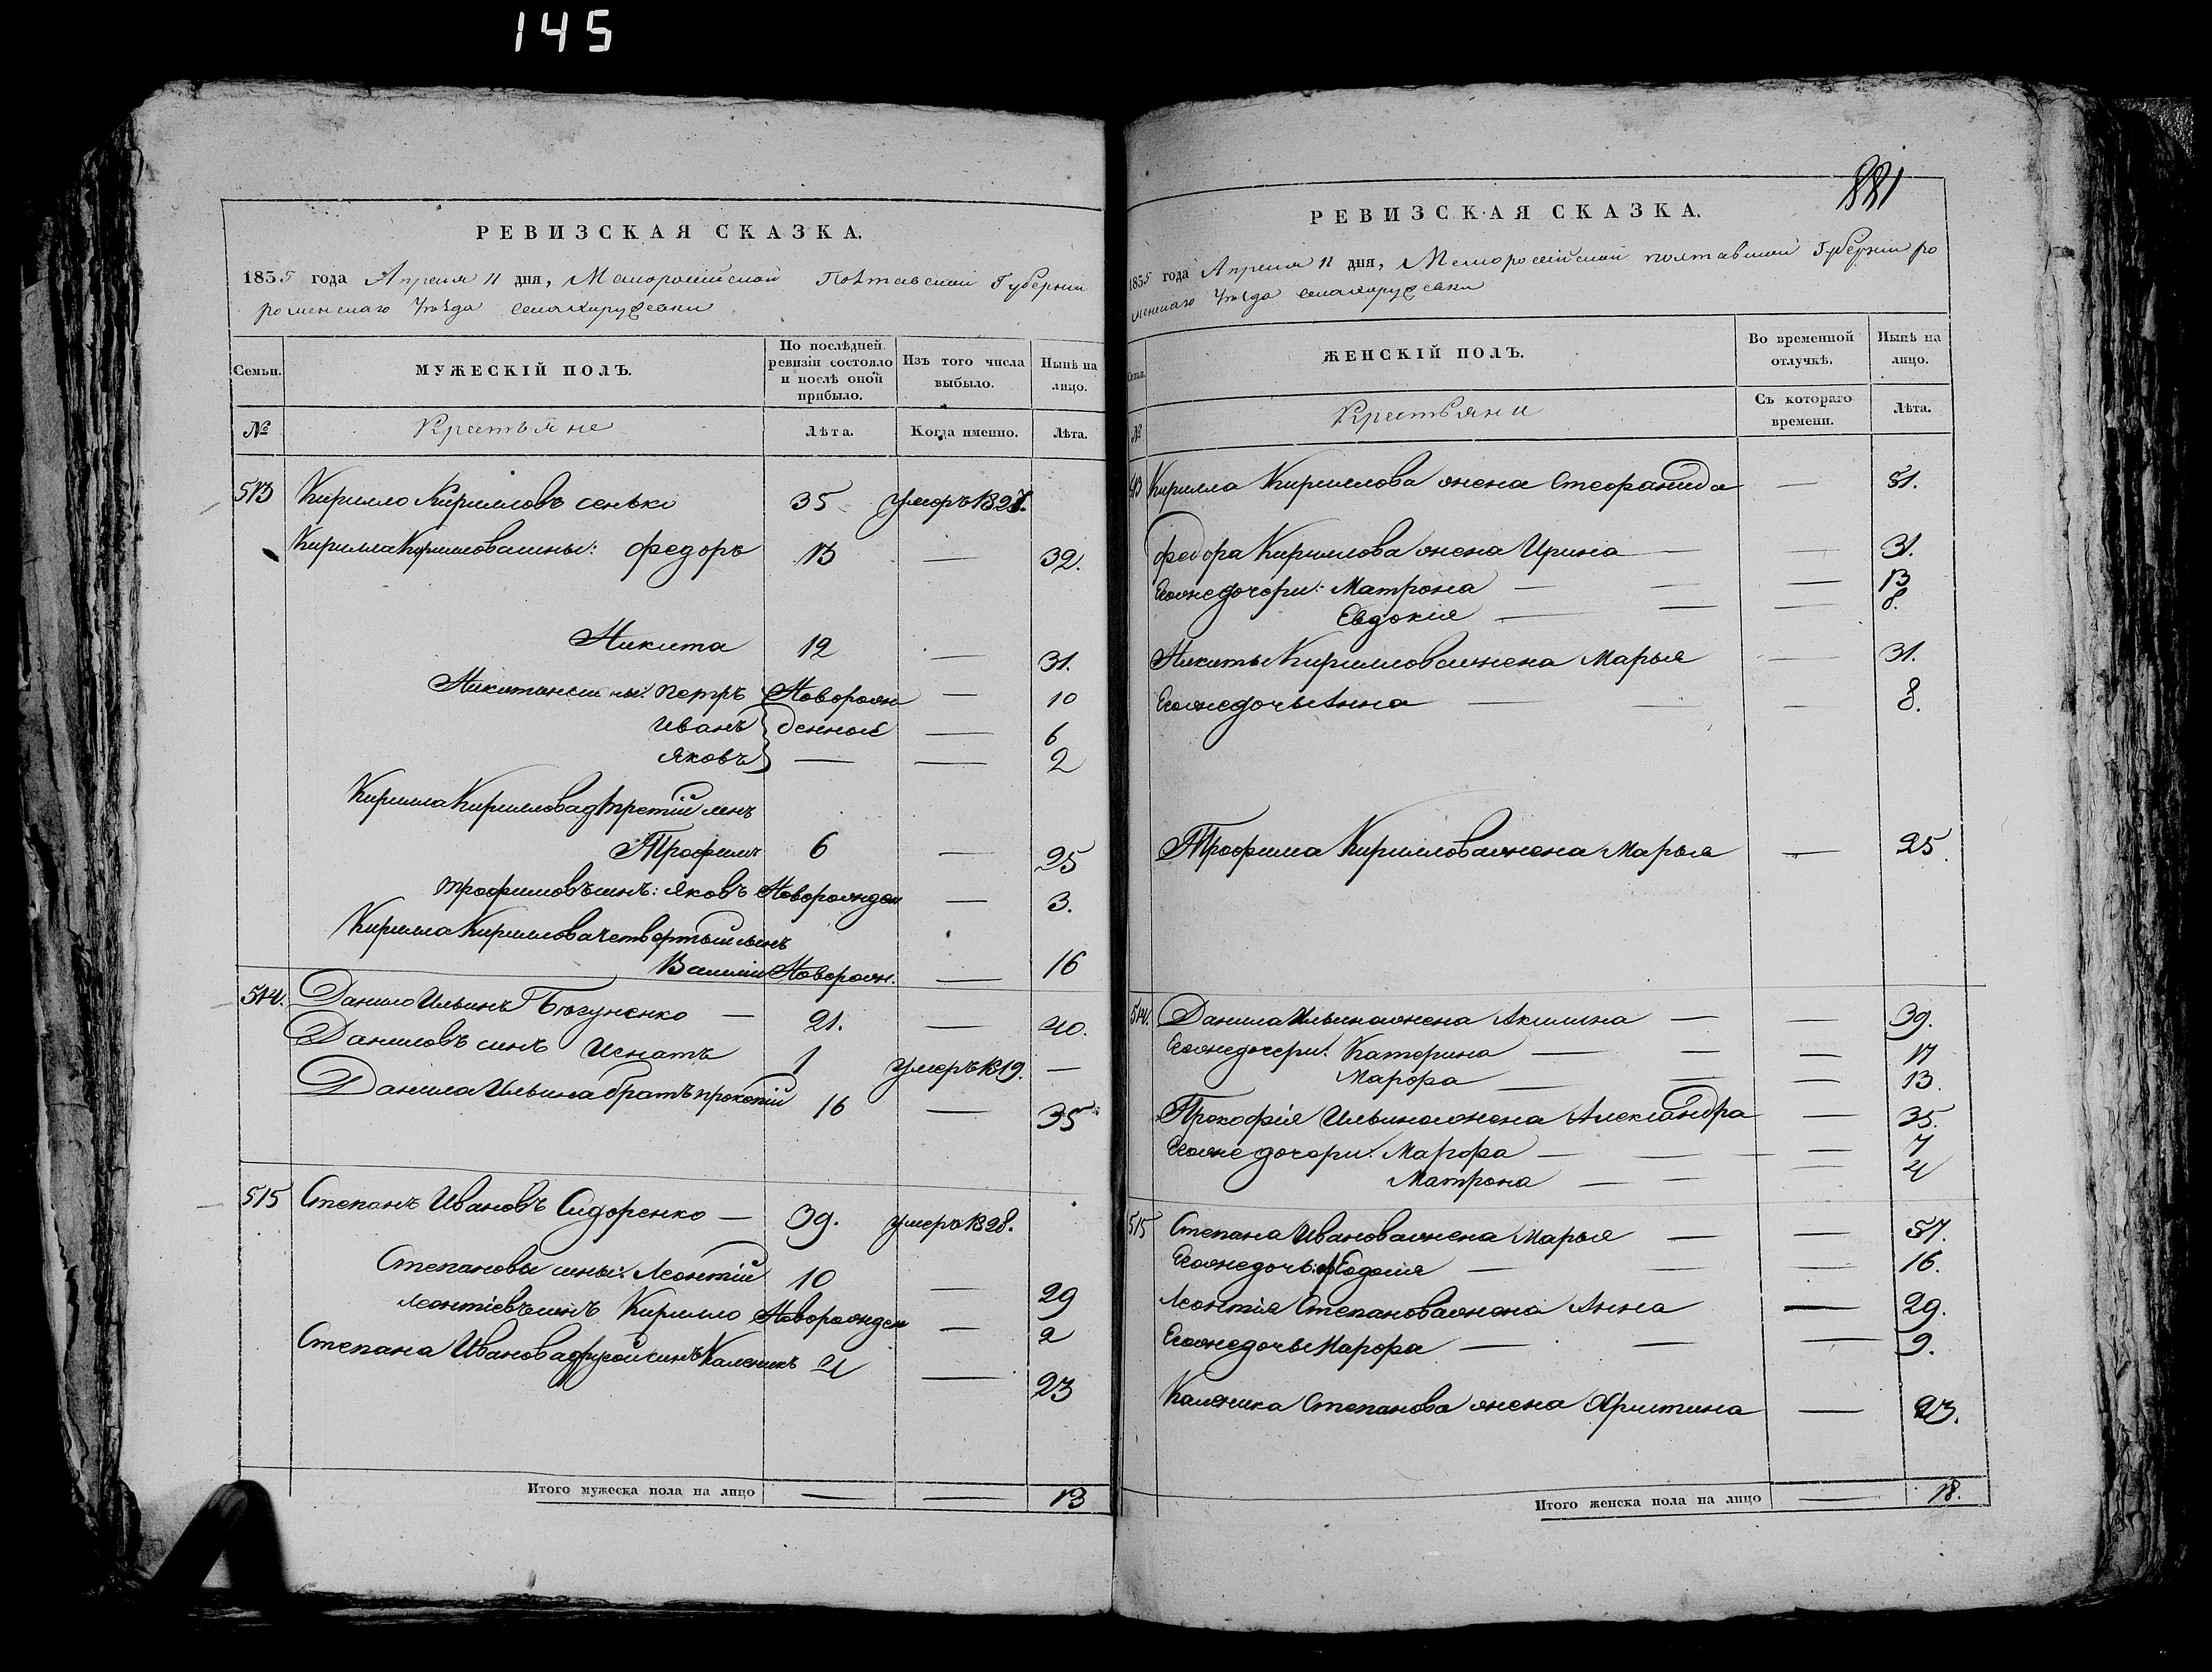 145
РЕВИЗСКАЯ СКАЗКА.
1835 года Апреля 11 дня, Малоросійской Полтавской Губерніи
роменскаго Уѣзда села
Семьи.
МУЖЕСКІЙ ПОЛЪ.
По послѣдней ревизіи состояло и послѣ оной прибыло.
Изъ того числа выбыло.
Нынѣ на лицо.
№
Крестьяне
Лѣта.
Когда именно.
Лѣта.
513 Кирилло Кирилловъ сенько 35 умеръ 182
Кирилла Кириллова сины: федоръ 13 — 32.
Никита 12 — 31.
Никитини сины: петръ Новорож — 10
Иванъ денные — 6
Яковъ — — 2
Кирилла Кириллова третій синъ
Трофимъ 6 — 25
трофимовъ синъ: Яковъ Новорожден — 3.
Кирилла Кириллова четвертый сынъ
Василій Новорож. — 16
514. Данило Ильинъ — 21. — 40.
Даниловъ синъ Игнатъ 1 умеръ 1819. —
Данила Ильина братъ прокопій 16 — 35
515 Степанъ Ивановъ Сидоренко — 39. умеръ 1828.
Степановы сины: Леонтій 10 — 29
Леонтіевъ синъ Кирилло Новорожден — 2
Степана Иванова другой синъ Каленикъ 4 — 23
Итого мужеска пола на лицо — — 13
881
РЕВИЗСКАЯ СКАЗКА.
1835 года Апреля 11 дня, Малоросійской полтавской Губерніи ро
менскаго Уѣзда села
Семьи.
ЖЕНСКІЙ ПОЛЪ.
Во временной отлучкѣ.
Нынѣ на лицо.
№
Крестьяни
Съ котораго времени.
Лѣта.
513 Кирилла Кириллова жена Стефанида — 51.
федора Кириллова жена Ирина — — 31.
Егожедочери: Матрона — — — 13
Евдокія — — — 8.
Никиты Кириллова жена Марья — 31.
Егожедочь Анна — — — 8.
Трофима Кириллова жена Марья — 25.
514. Данила Ильина жена Акилина — — 39.
Егожедочери: Катерина — — — 17
Марфа — — — 13.
Прокофія Ильина жена Александра — 35.
Егоже дочери: Марфа — — — 7
Матрона — — — 4
515 Степана Иванова жена Марья — — 57.
Егожедочь: — — — 16.
Леонтія Степанова жена Анна — 29.
Егожедочь Марфа — — — 9.
Каленика Степанова жена Христина — 23.
Итого женска пола на лицо — 18.